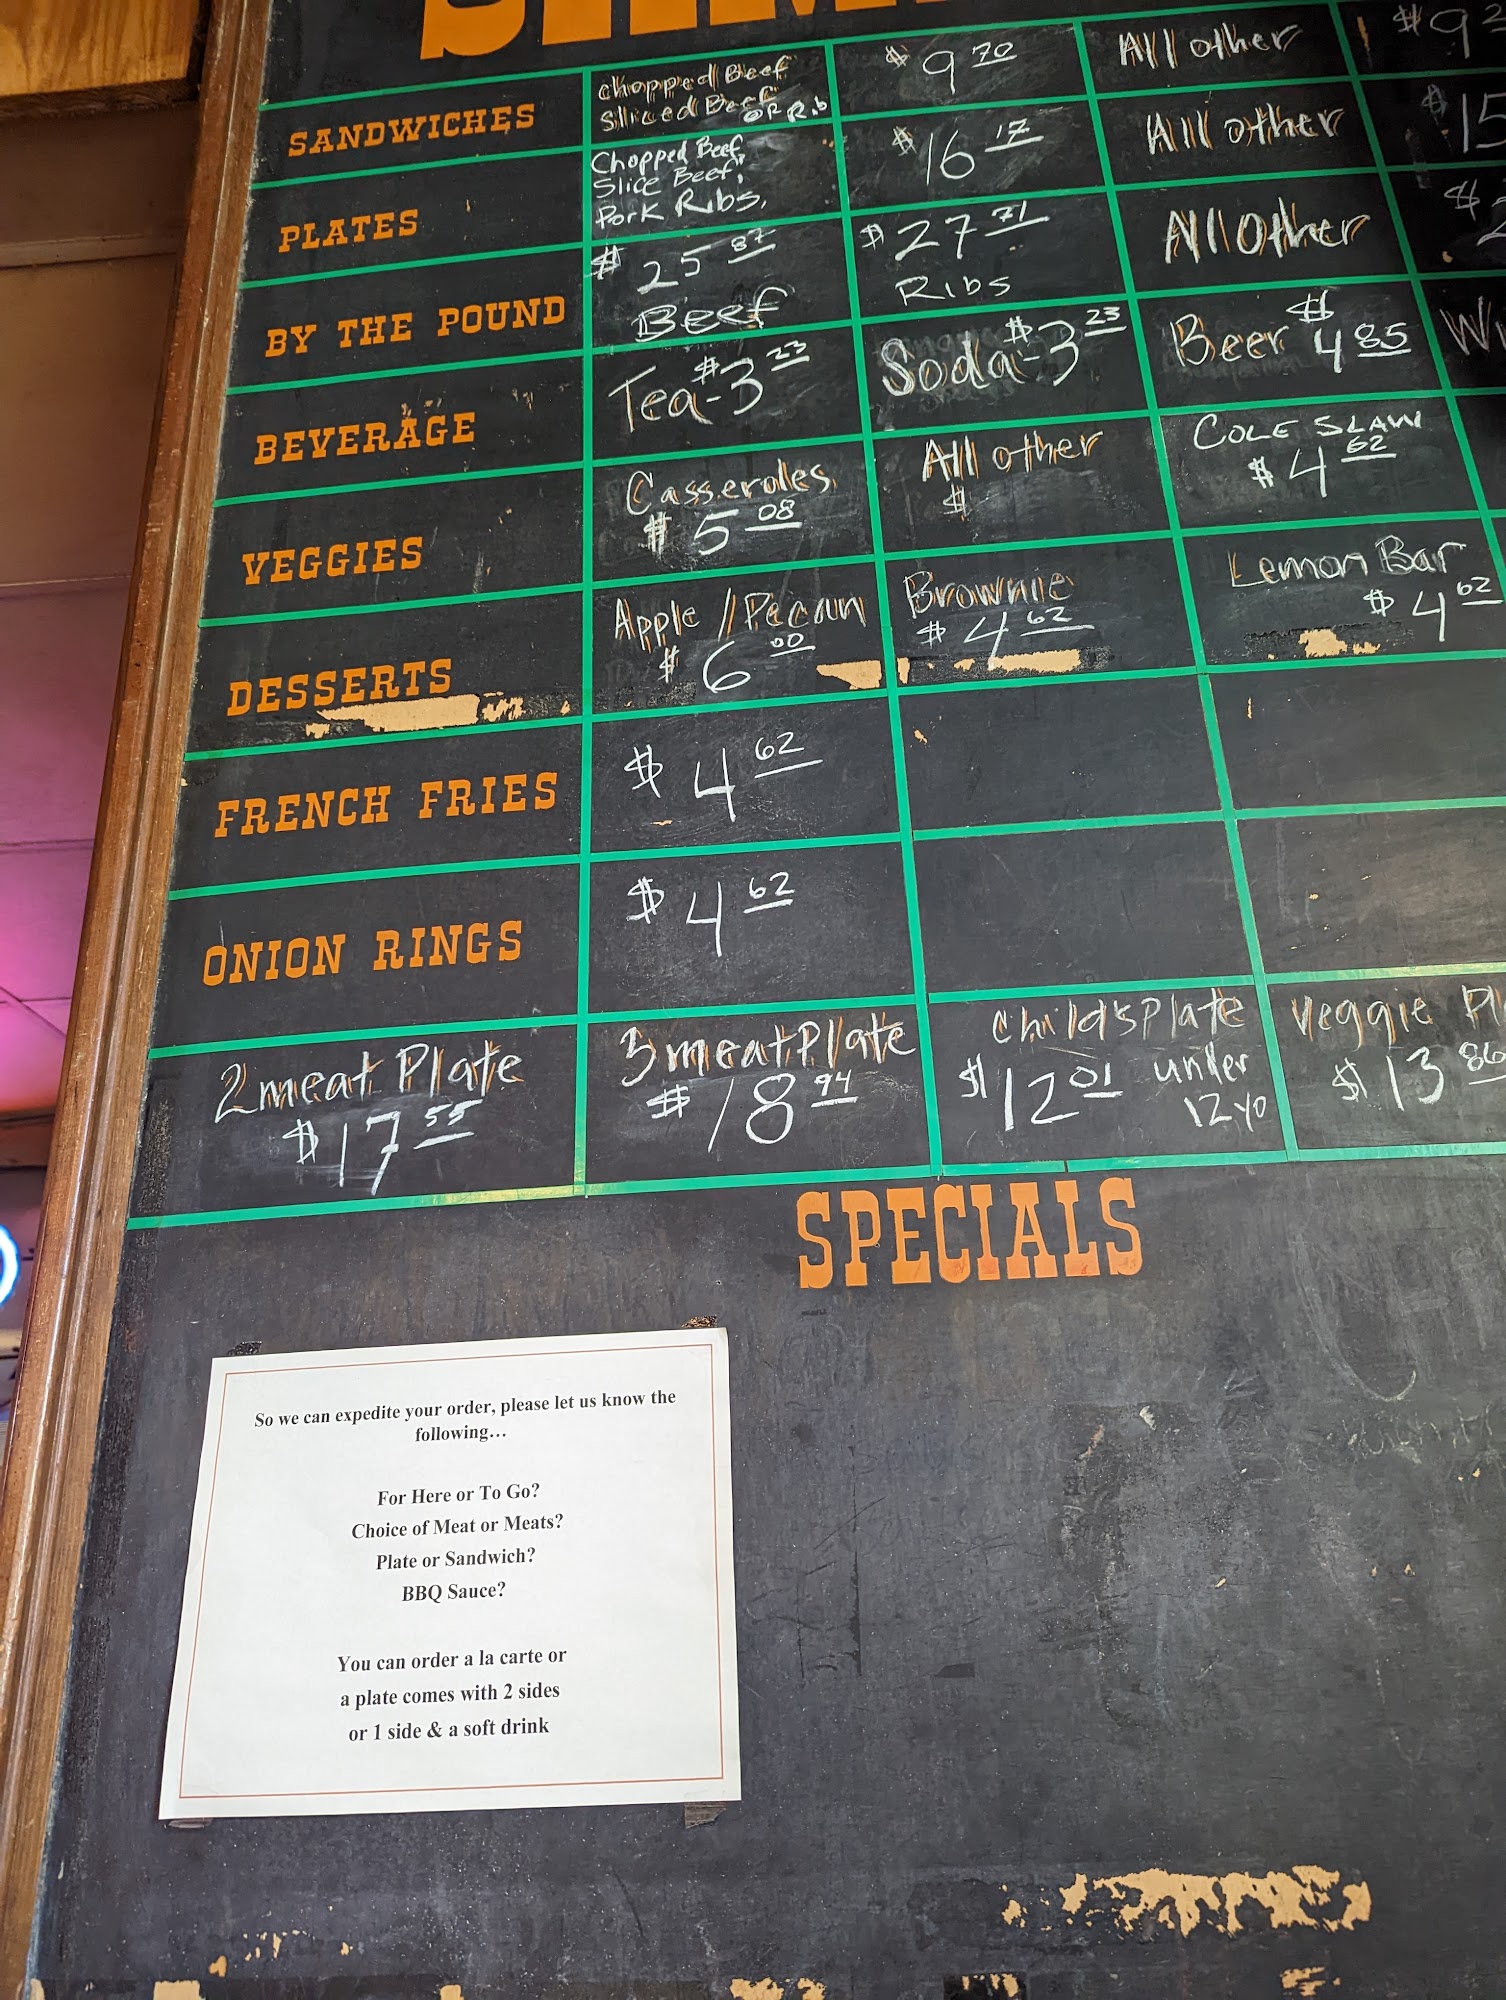 SANDWICHES
Chopped Beef
Sliced Beef
OR Rib
$9 70
All other
$9
PLATES
Chopped Beef,
Slice Beef,
Pork Ribs,
$16 17
All other
$15
BY THE POUND
$25 87
Beef
$27 71
Ribs
All Other
$
BEVERAGE
Tea-$3 23
Soda-$3 23
Beer $4 85
VEGGIES
Casseroles
$5 08
All other
$
COLE SLAW
$4 62
DESSERTS
Apple/Pecan
$6 00
Brownie
$4 62
Lemon Bar
$4 62
FRENCH FRIES
$4 62
ONION RINGS
$4 62
2 meat Plate
$17 55
3 meat Plate
$18 94
Child's Plate
$12 01 under
12 yo
Veggie Pl
$13 86
SPECIALS
So we can expedite your order, please let us know the
following...
For Here or To Go?
Choice of Meat or Meats?
Plate or Sandwich?
BBQ Sauce?
You can order a la carte or
a plate comes with 2 sides
or 1 side & a soft drink